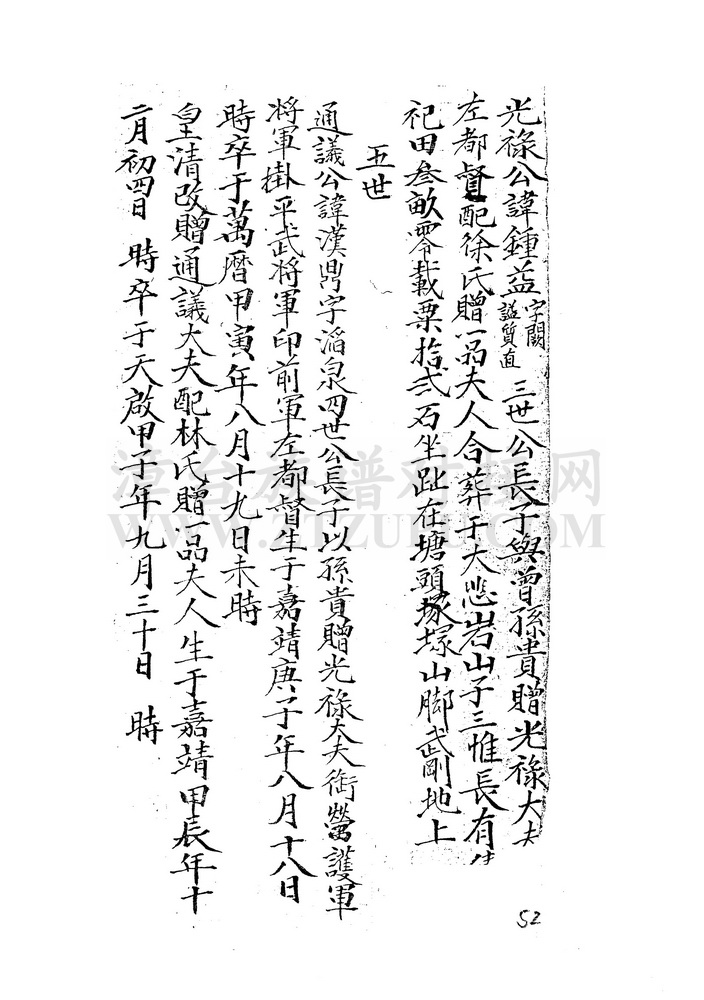 光祿公諱鍾益字闕謚質直三世公長子與曾孫貴贈光祿大夫
左都督配徐氏贈一品夫人合葬于大悲岩山子三惟長有
祀田叁畝零載粟拾弍石坐趾在塘頭塚塚山脚武剛地上
五世
通議公諱漢鼎字滔泉四世公長子以孫貴贈光祿大夫銜營護軍
將軍掛平武將軍印前軍左都督生于嘉靖庚子年八月十八日
時卒于萬曆甲寅年八月十九日未時
皇清改贈通議大夫配林氏贈一品夫人生于嘉靖甲辰年十
二月初四日 時卒于天啟甲子年九月三十日 時
52